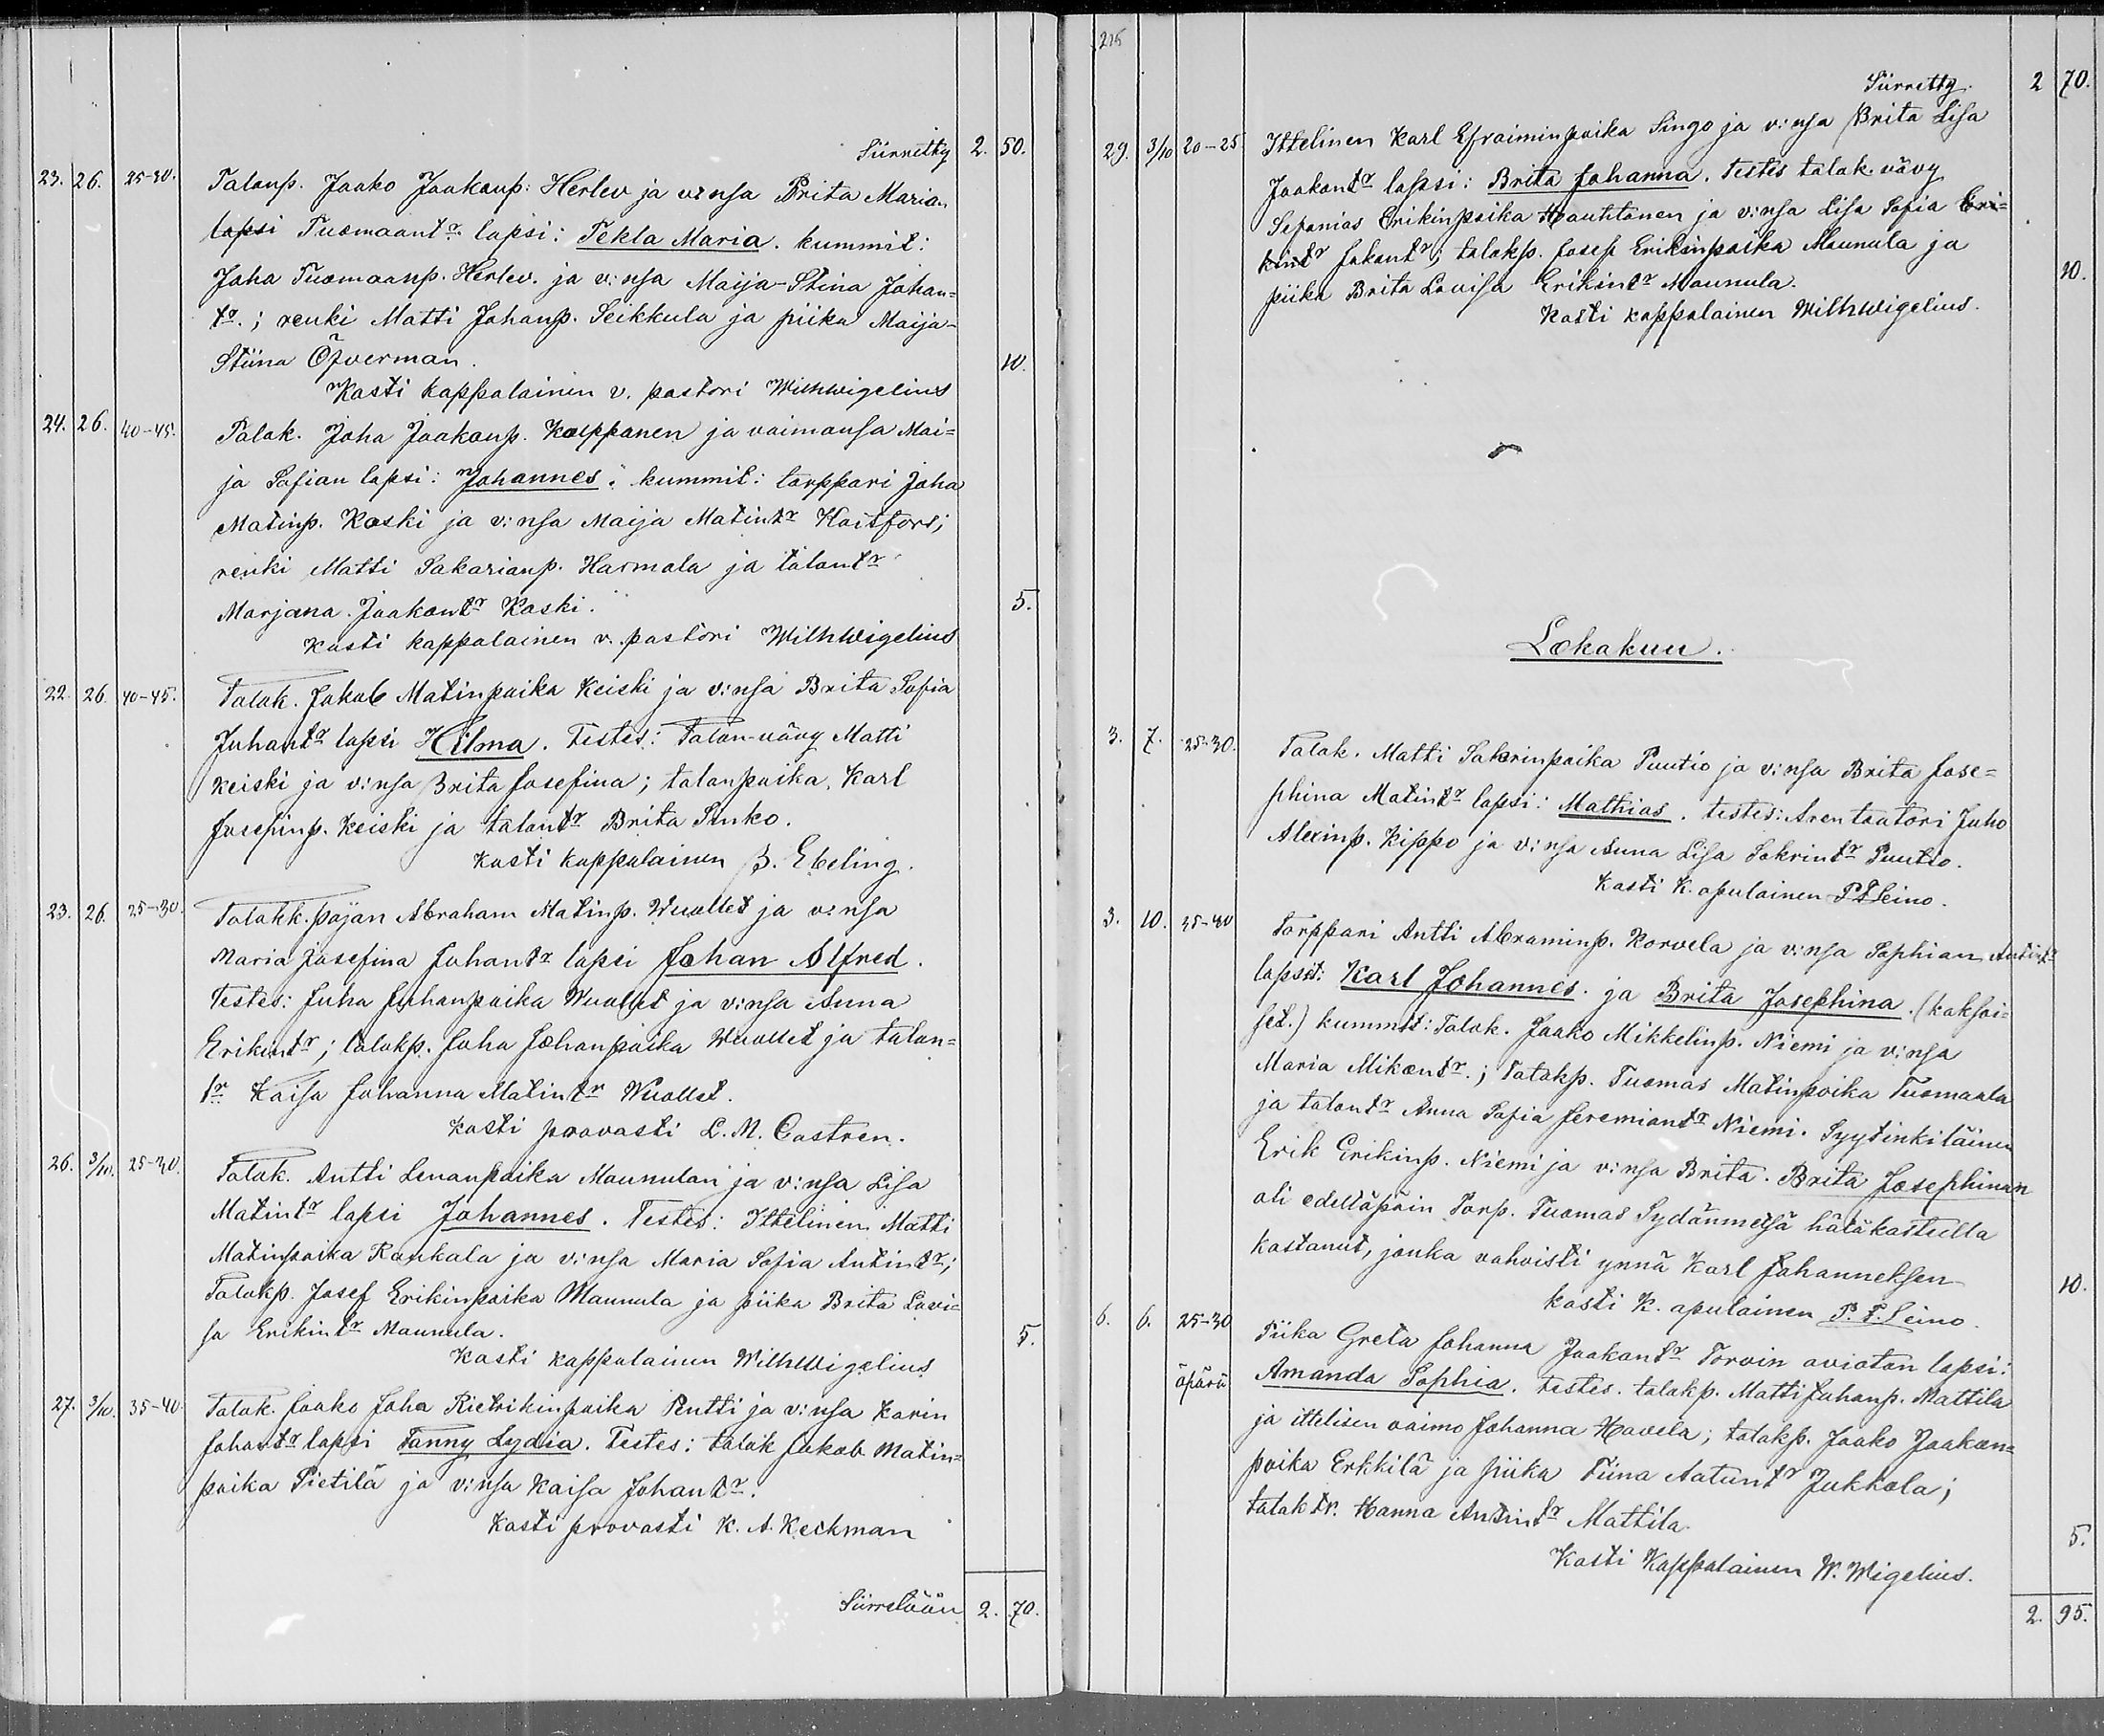 Siirretty 2. 50.
23. 26. 25-30. Talonp. Jaako Jaakonp: Herlev ja v:nsa Brita Maria
lapsi Tuomaantr. lapsi: Tekla Maria. kummit:
Joha Tuomaanp. Herlev. ja v:nsa Maija-Stina Johan=
tr.; renki Matti Johanp. Seikkula ja piika Maija-
Stiina Öfverman. 10.
Kasti kappalainen v. pastori Wilh Wigelius
24. 26. 40-45. Talok. Joha Jaakonp. Kauppanen ja vaimonsa Mai=
ja Sofian lapsi: Johannes; kummit: torppari Joha
Matinp. Koski ja v:nsa Maija Matintr Hoitfors;
renki Matti Sakarianp. Harmala ja talontr
Marjana Jaakontr Koski. 5.
Kasti kappalainen v. pastori Wilh Wigelius
22. 26. 40-45. Talok. Jakob Matinpoika Keiski ja v:nsa Brita Sofia
Juhantr lapsi Hilma. Testes: Talon-vävy Matti
Keiski ja v:nsa Brita Josefina; talonpoika Karl
Josefinp. Keiski ja talontr Brita Sinko.
Kasti kappalainen B. Ebeling.
23. 26. 25-30. Talokk. pojan Abraham Matinp. Wuollet ja v:nsa
Maria Josefina Juhantr lapsi Johan Alfred.
Testes: Juha Juhanpoika Wuollet ja v:nsa Anna
Erikintr; talokp. Juha Johanpoika Wuollet ja talon=
tr Kaisa Johanna Matintr Wuollet.
Kasti provasti L. M. Castren.
26. 3/10. 25-30. Talok. Antti Lenanpoika Maunulan ja v:nsa Lisa
Matintr lapsi Johannes. Testes: Ittelinen Matti
Matinpoika Rankala ja v:nsa Maria Sofia Antintr;
Talokp. Josef Erikinpoika Maunula ja piika Brita Lovi=
sa Erikintr Maunula. 5.
Kasti kappalainen Wilh Wigelius
27. 3/10. 35-40. Talok. Jaako Joha Rietrikinpoika Pentti ja v:nsa Karin
Johantr lapsi Fanny Lydia. Testes: talok Jakob Matin=
poika Pietilä ja v:nsa Kaisa Johantr.
Kasti provasti K. A. Keckman
Siirretään 2. 70.
215
Siirretty. 2 70.
29. 3/10 20-25 Ittelinen Karl Efraiminpoika Singo ja v:nsa Brita Lisa
Jaakontr lapsi: Brita Johanna. Testes talok. vävy
Sefanias Erikinpoika Hautitanen ja v:nsa Lisa Sofia Eri=
kintr Jakontr; talokp. Josef Erikinpoika Maunula ja
piika Brita Lovisa Erikintr Maunula. 10.
Kasti kappalainen Wilh Wigelius.
Lokakuu.
3. 7. 25-30. Talok. Matti Sakrinpoika Puutio ja v:nsa Brita Jose=
phina Matintr lapsi: Mathias. testes: Arentaatori Juho
Alexinp. Kippo ja v:nsa Anna Lisa Sakrintr Puutio.
Kasti K. apulainen P. F. Leino.
3. 10. 35-40 Torppari Antti Abraminp. Korvela ja v:nsa Sophian Antintr
lapset: Karl Johannes. ja Brita Josephina. (kaksoi=
set.) kummit: Talok. Jaako Mikkelinp. Niemi ja v:nsa
Maria Mikontr.; Talokp. Tuomas Matinpoika Tuomaala
ja talontr Anna Sofia Jeremiantr Niemi. Syytinkiläinen
Erik Erikinp. Niemi ja v:nsa Brita. Brita Josephinan
oli edeltäpäin Torp. Tuomas Sydänmetsä hätäkasteella
kastanut, jonka vahvisti ynnä Karl Johanneksen 10.
kasti K. apulainen P. F. Leino.
6. 6. 25-30 Piika Greta Johanna Jaakontr Torvin avioton lapsi:
äpärä Amanda Sophia. testes. talokp. Matti Juhanp. Mattila
ja ittelisen vaimo Johanna Havela; talokp. Jaako Jaakon=
poika Erkkilä ja piika Tiina Aatuntr Jukkola;
talok tr. Hanna Antintr Mattila. 5.
Kasti Kappalainen W. Wigelius.
2. 95.